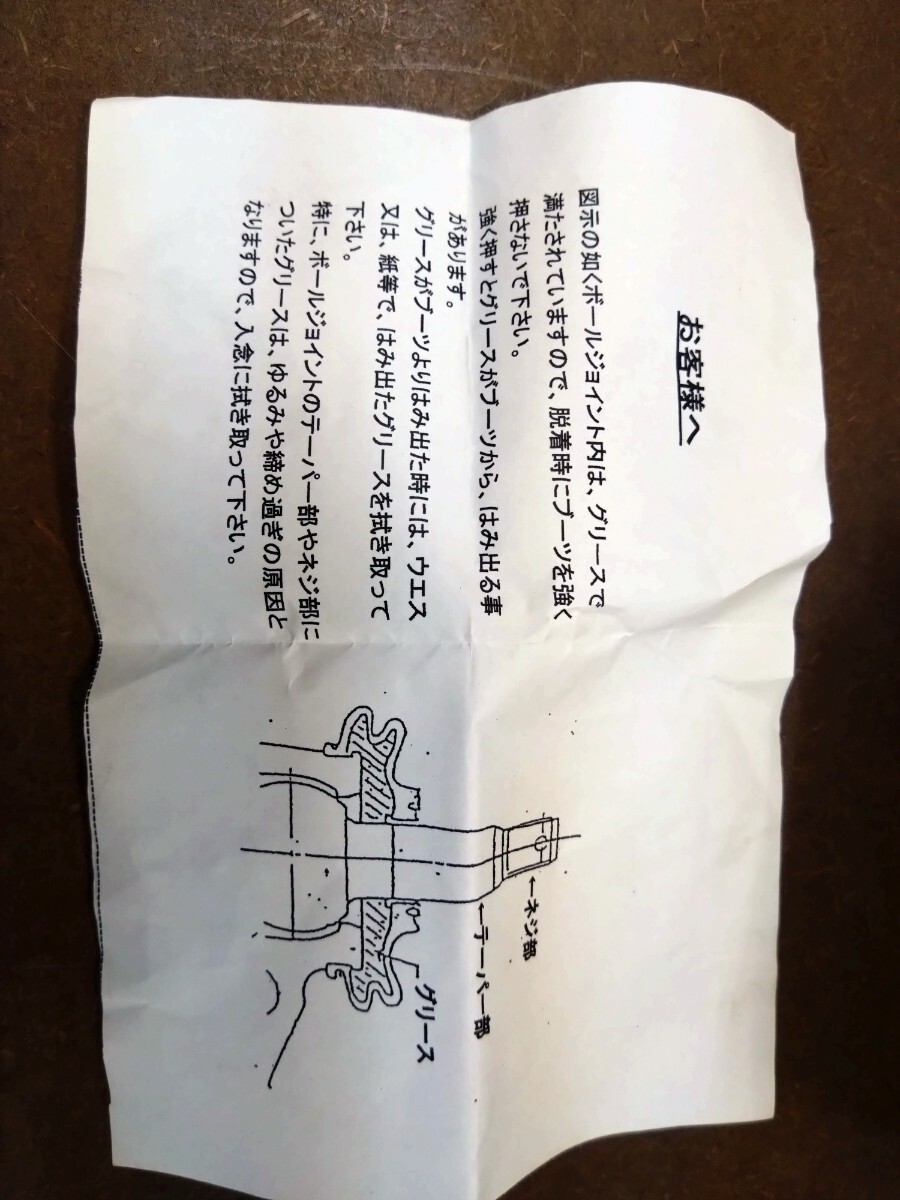 お客様へ
図示の如くボールジョイント内は、グリースで
満たされていますので、脱着時にブーツを強く
押さないで下さい。
強く押すとグリースがブーツから、はみ出る事
があります。
グリースがブーツよりはみ出た時には、ウエス
又は、紙等で、はみ出たグリースを拭き取って
下さい。
特に、ボールジョイントのテーパー部やネジ部に
ついたグリースは、ゆるみや締め過ぎの原因と
なりますので、入念に拭き取って下さい。
←ネジ部
←テーパー部
グリース